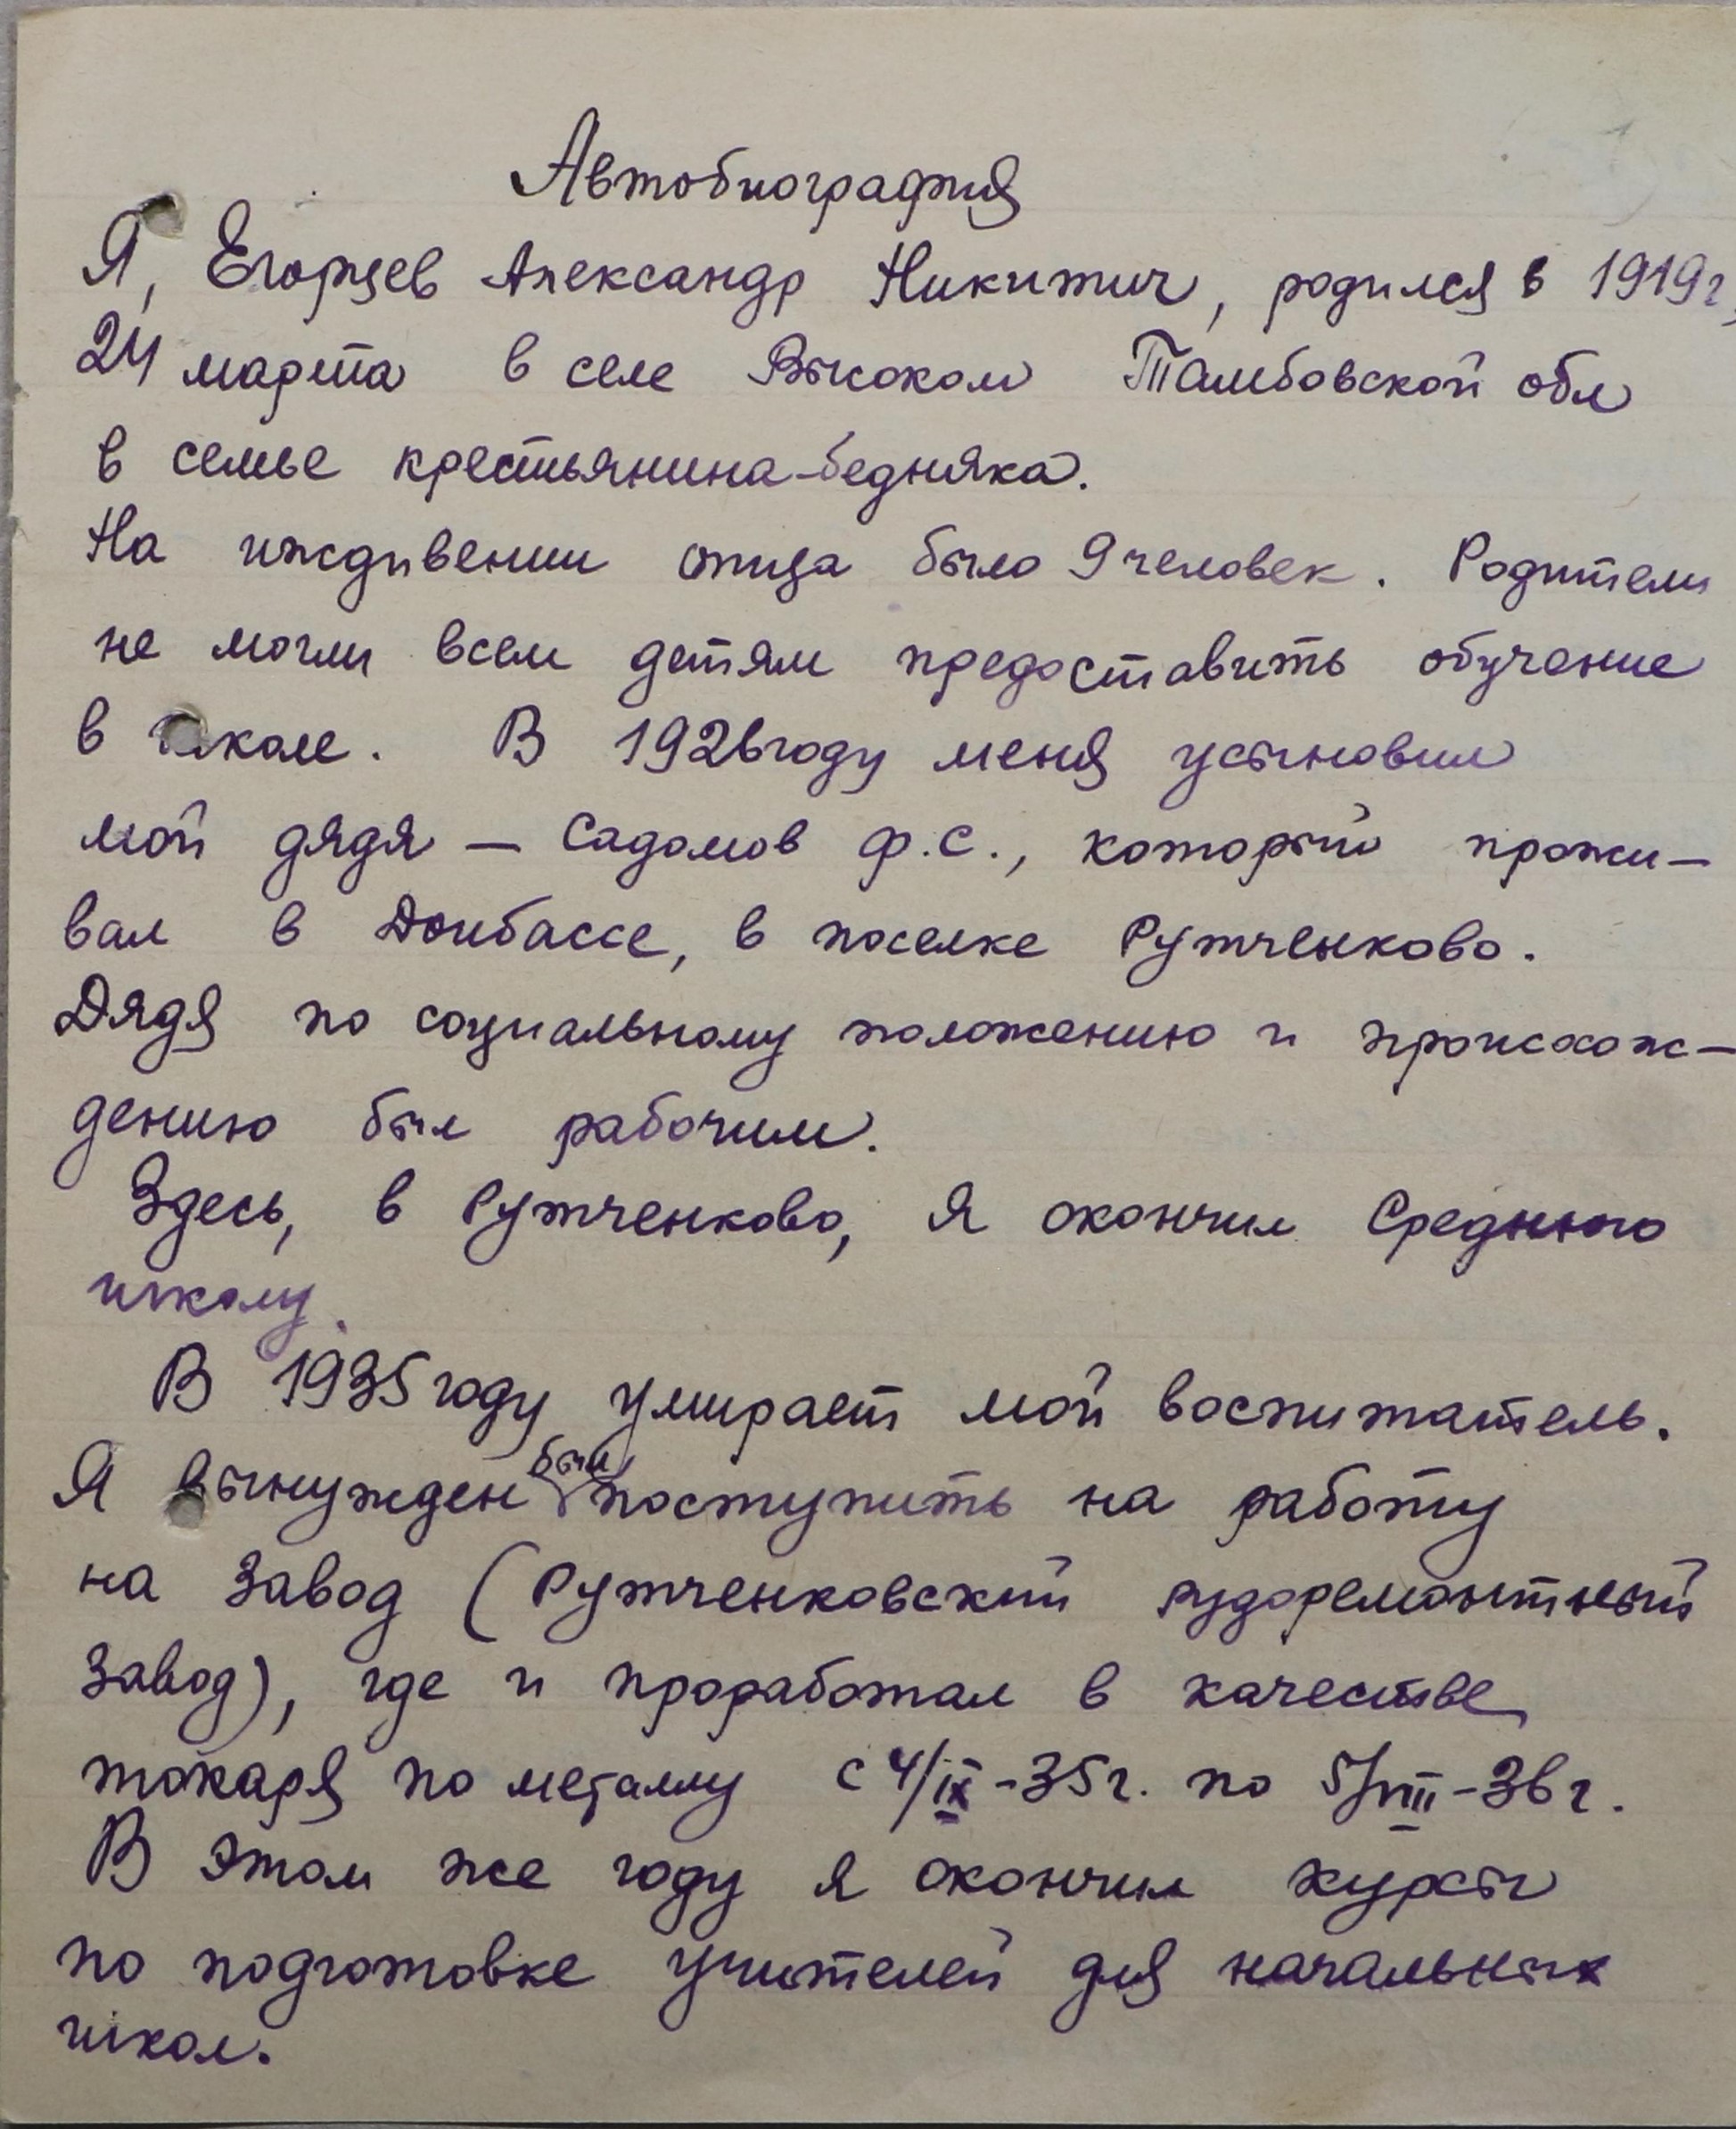 Автобиография
Я, Егорцев Александр Никитич, родился в 1919г,
24 марта в селе Высоком Тамбовской обл
в семье крестьянина-бедняка.
На иждивении отца было 9 человек. Родители
не могли всем детям предоставить обучение
в школе. В 1926 году меня усыновил
мой дядя — Садомов Ф.С., который прожи-
вал в Донбассе, в поселке Рутченково.
Дядя по социальному положению и происхож-
дению был рабочим.
Здесь, в Рутченково, я окончил Среднюю
школу.
В 1935 году умирает мой воспитатель.
Я вынужден был поступить на работу
на завод (Рутченковский рудоремонтный
завод), где и проработал в качестве
токаря по металлу с 4/IX-35г. по 5/VIII-36г.
В этом же году я окончил курсы
по подготовке учителей для начальных
школ.